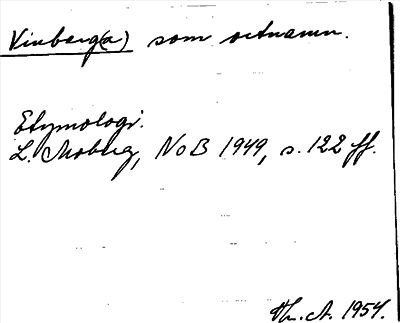 Vinberg(a) som ortnamn.
Etymologi.
L. Moberg, NoB 1949, s. 122 ff.
Th. A. 1954.